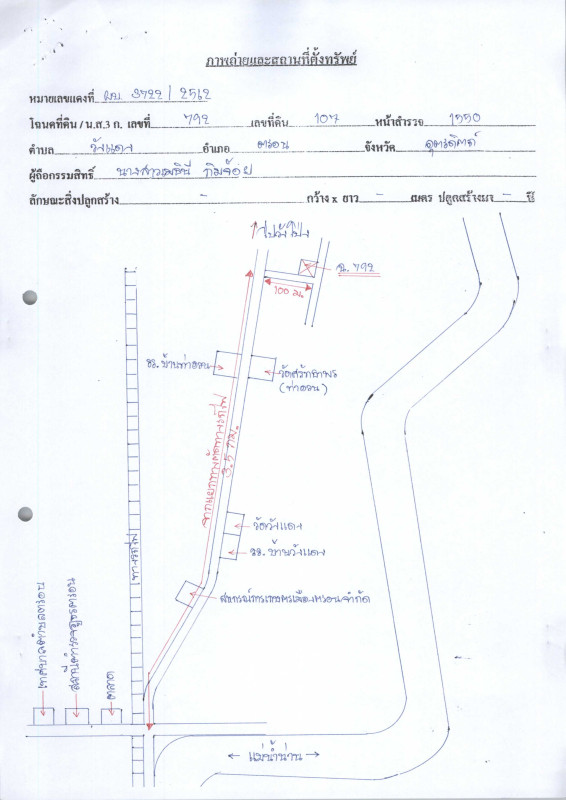 ภาพถ่ายและสถานที่ตั้งทรัพย์
หมายเลขแดงที่ ผบ. 3722 / 2562
โฉนดที่ดิน / น.ส.3 ก. เลขที่ 792 เลขที่ดิน 107 หน้าสำรวจ 1550
ตำบล วังแดง อำเภอ ตรอน จังหวัด อุตรดิตถ์
ผู้ถือกรรมสิทธิ์ นางสาว
ลักษณะสิ่งปลูกสร้าง - กว้าง x ยาว - เมตร ปลูกสร้างมา - ปี
ไปวังโป่ง
ฉ. 792
100 ม.
รร. บ้านท่าควน
(ท่าควน)
จากแยกทางตัดทางรถไฟ
3.5 กม.
วัดวังแดง
รร. บ้านวังแดง
ทางรถไฟ
สหกรณ์การเกษตรเมืองตรอนจำกัด
เทศบาลตำบลตรอน
สถานีตำรวจภูธรตรอน
ตลาด
แม่น้ำน่าน